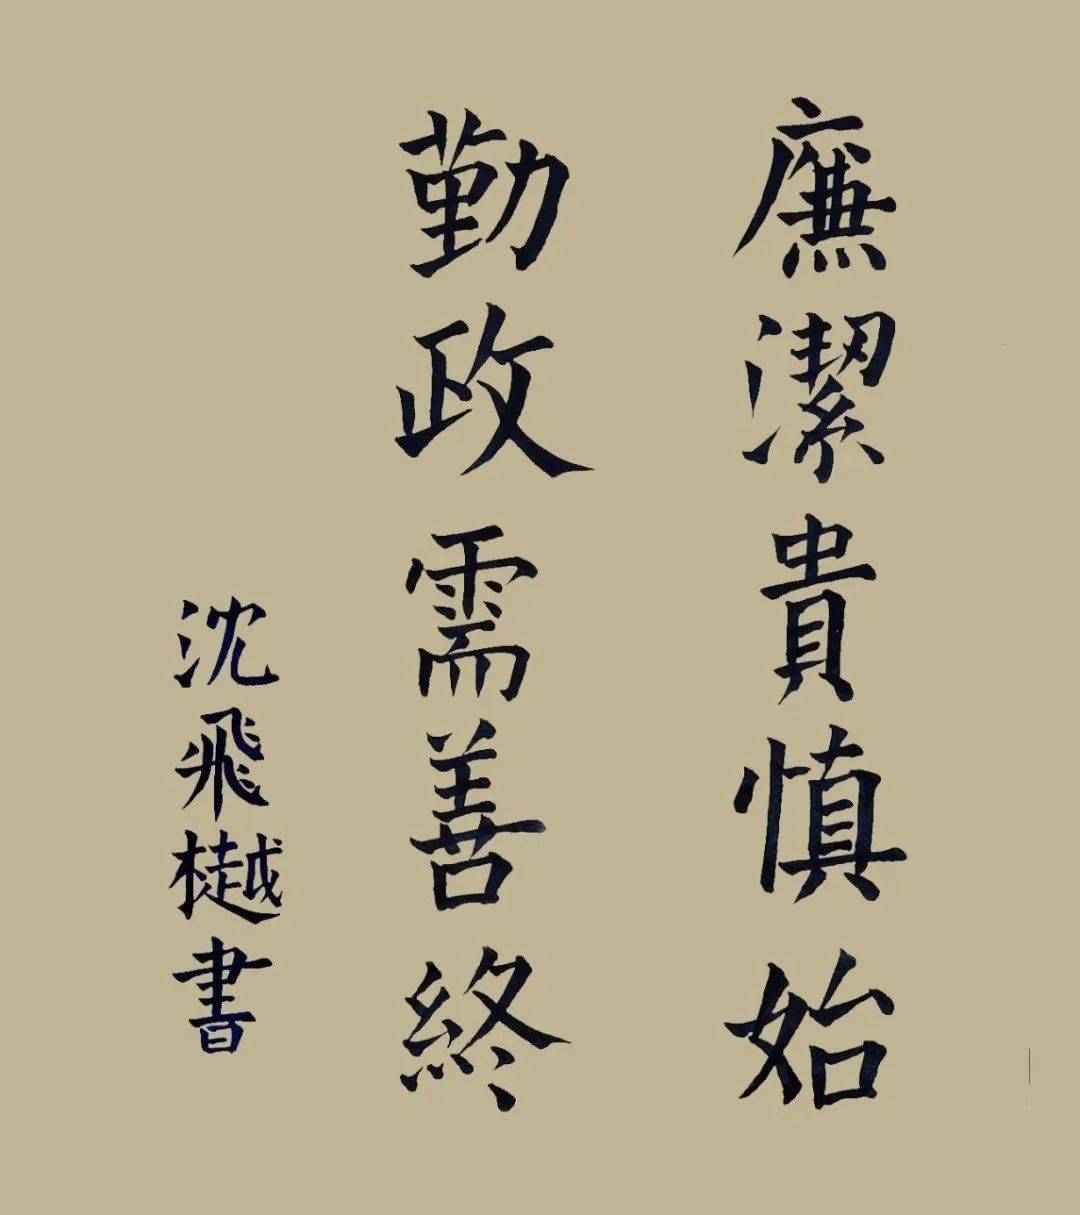 廉潔貴慎始
勤政需善終
沈飛樾書